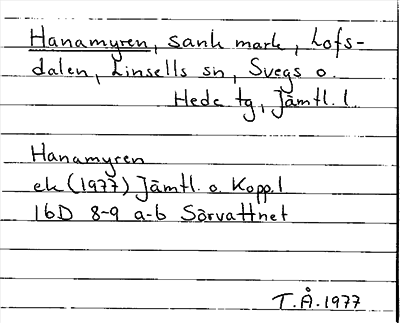 Hanamyren, sank mark, Lofs-
dalen, Linsells sn, Svegs o.
Hede tg, Jämtl. l.
Hanamyren
ek (1977) Jämtl. o. Kopp.l
16D 8-9 a-b Sörvattnet
T.Å.1977